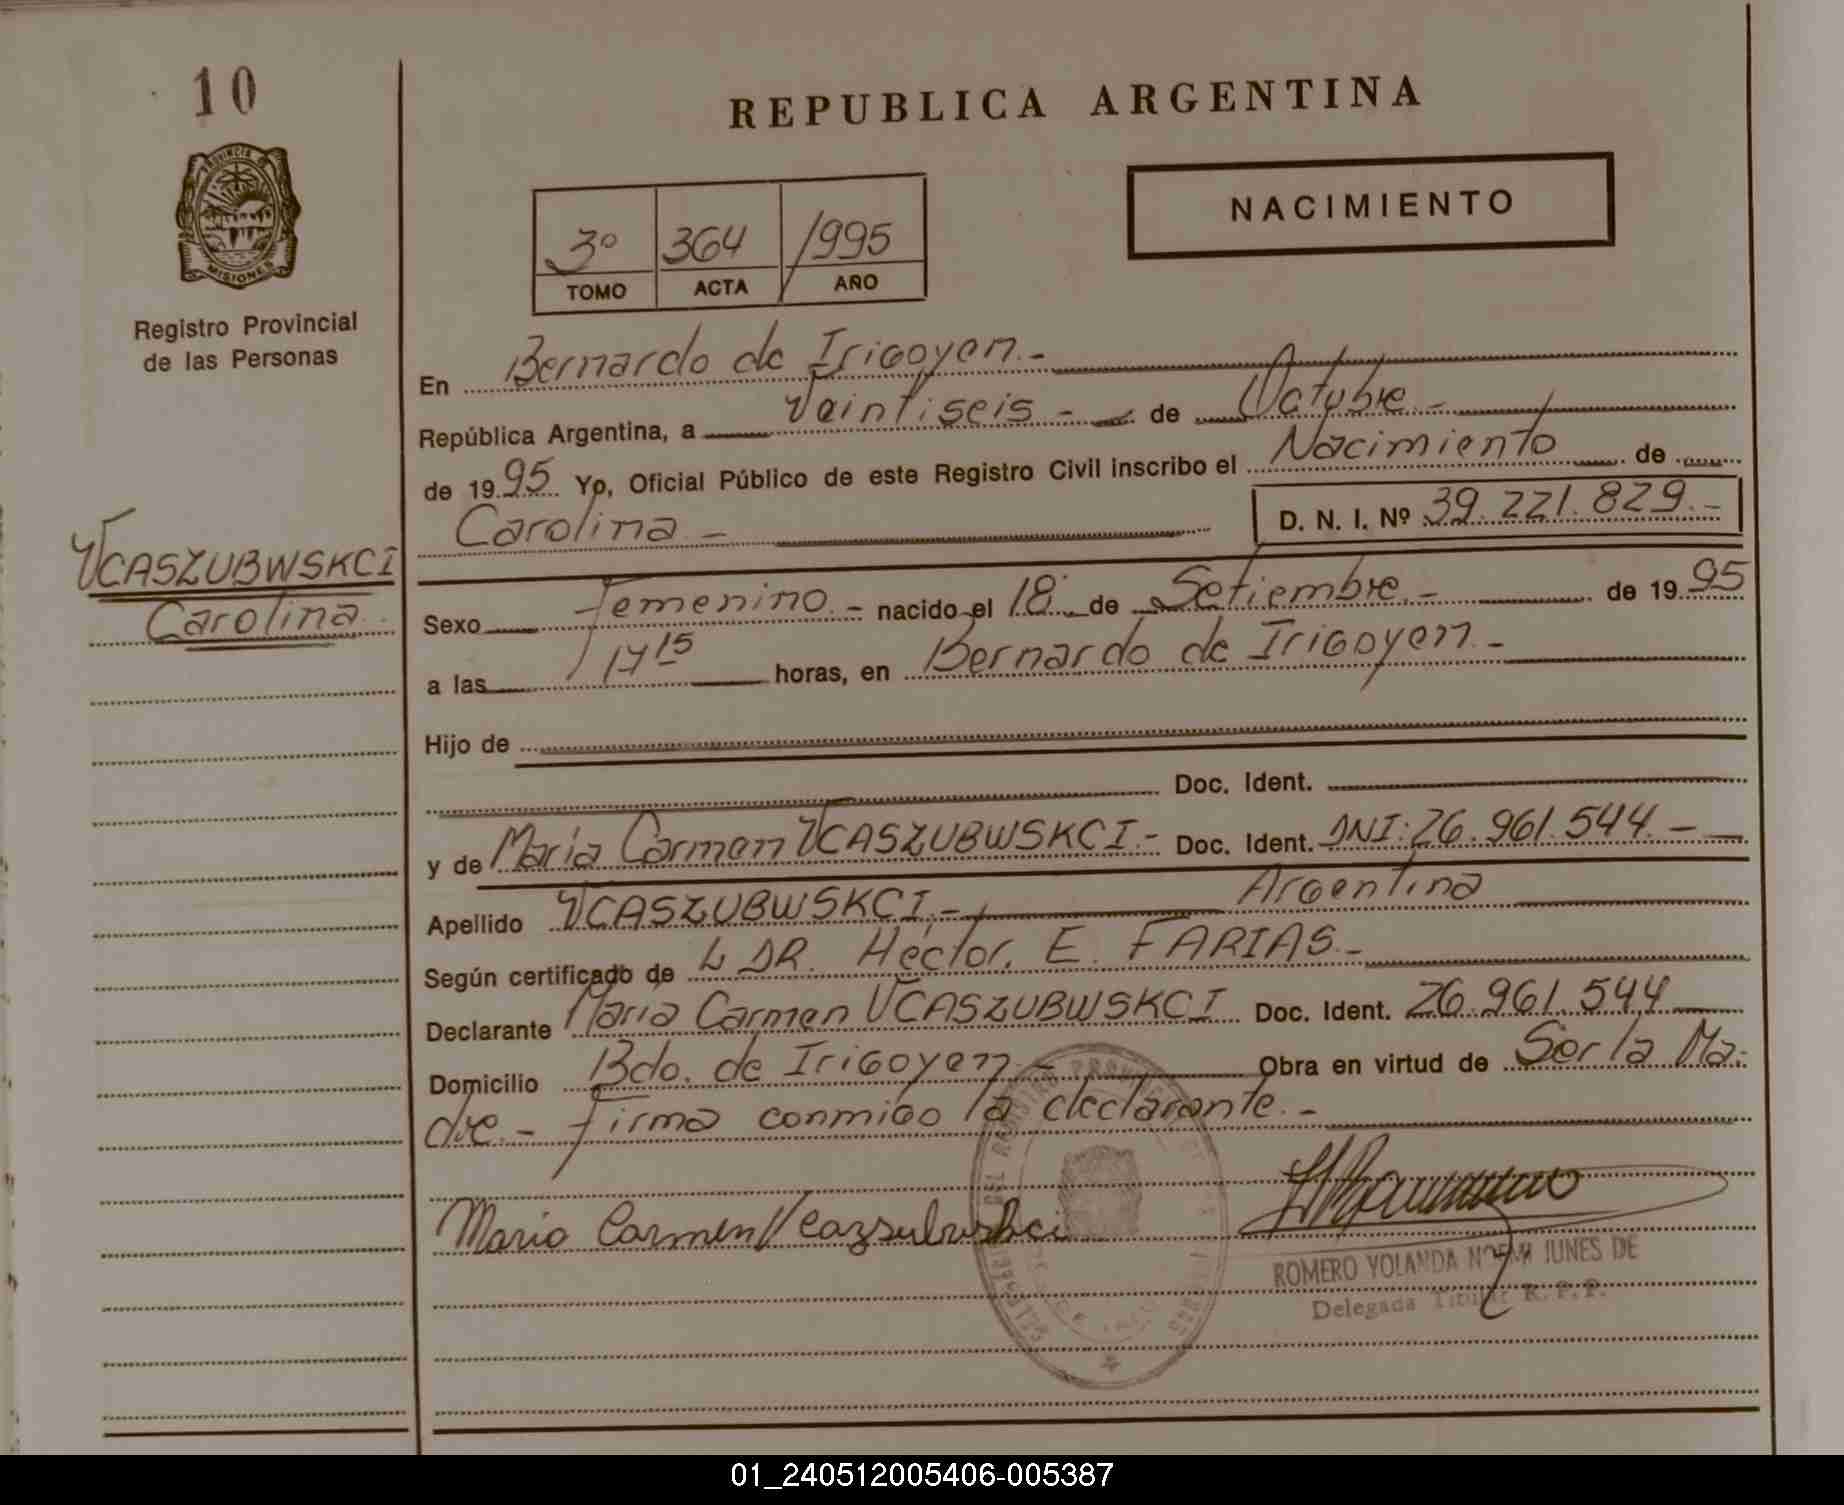 10
REPUBLICA ARGENTINA
PROVINCIA DE
MISIONES
Registro Provincial
de las Personas
3º 364 1995
TOMO ACTA AÑO
NACIMIENTO
En Bernardo de Irigoyen.-
República Argentina, a Veintiseis - de Octubre.-
de 1995 Yo, Oficial Público de este Registro Civil inscribo el Nacimiento de
Carolina.- D. N. I. Nº 39.221.829.-
VCASZUBWSKCI
Carolina.
Sexo femenino.- nacido el 18. de Setiembre.- de 1995
a las 17 15 horas, en Bernardo de Irigoyen.-
Hijo de
Doc. Ident.
y de María Carmen VCASZUBWSKCI.- Doc. Ident. DNI: 26.961.544.-
Apellido VCASZUBWSKCI.- Argentina
Según certificado de DR. Héctor. E. FARIAS.-
Declarante María Carmen VCASZUBWSKCI Doc. Ident. 26.961.544
Domicilio Bdo. de Irigoyen.- Obra en virtud de Ser la Ma-
dre.- firma conmigo la declarante.-
Maria Carmen Vcazsubwskci
ROMERO YOLANDA NOEMI JUNES DE
Delegada Titular R.P.P.
01_240512005406-005387